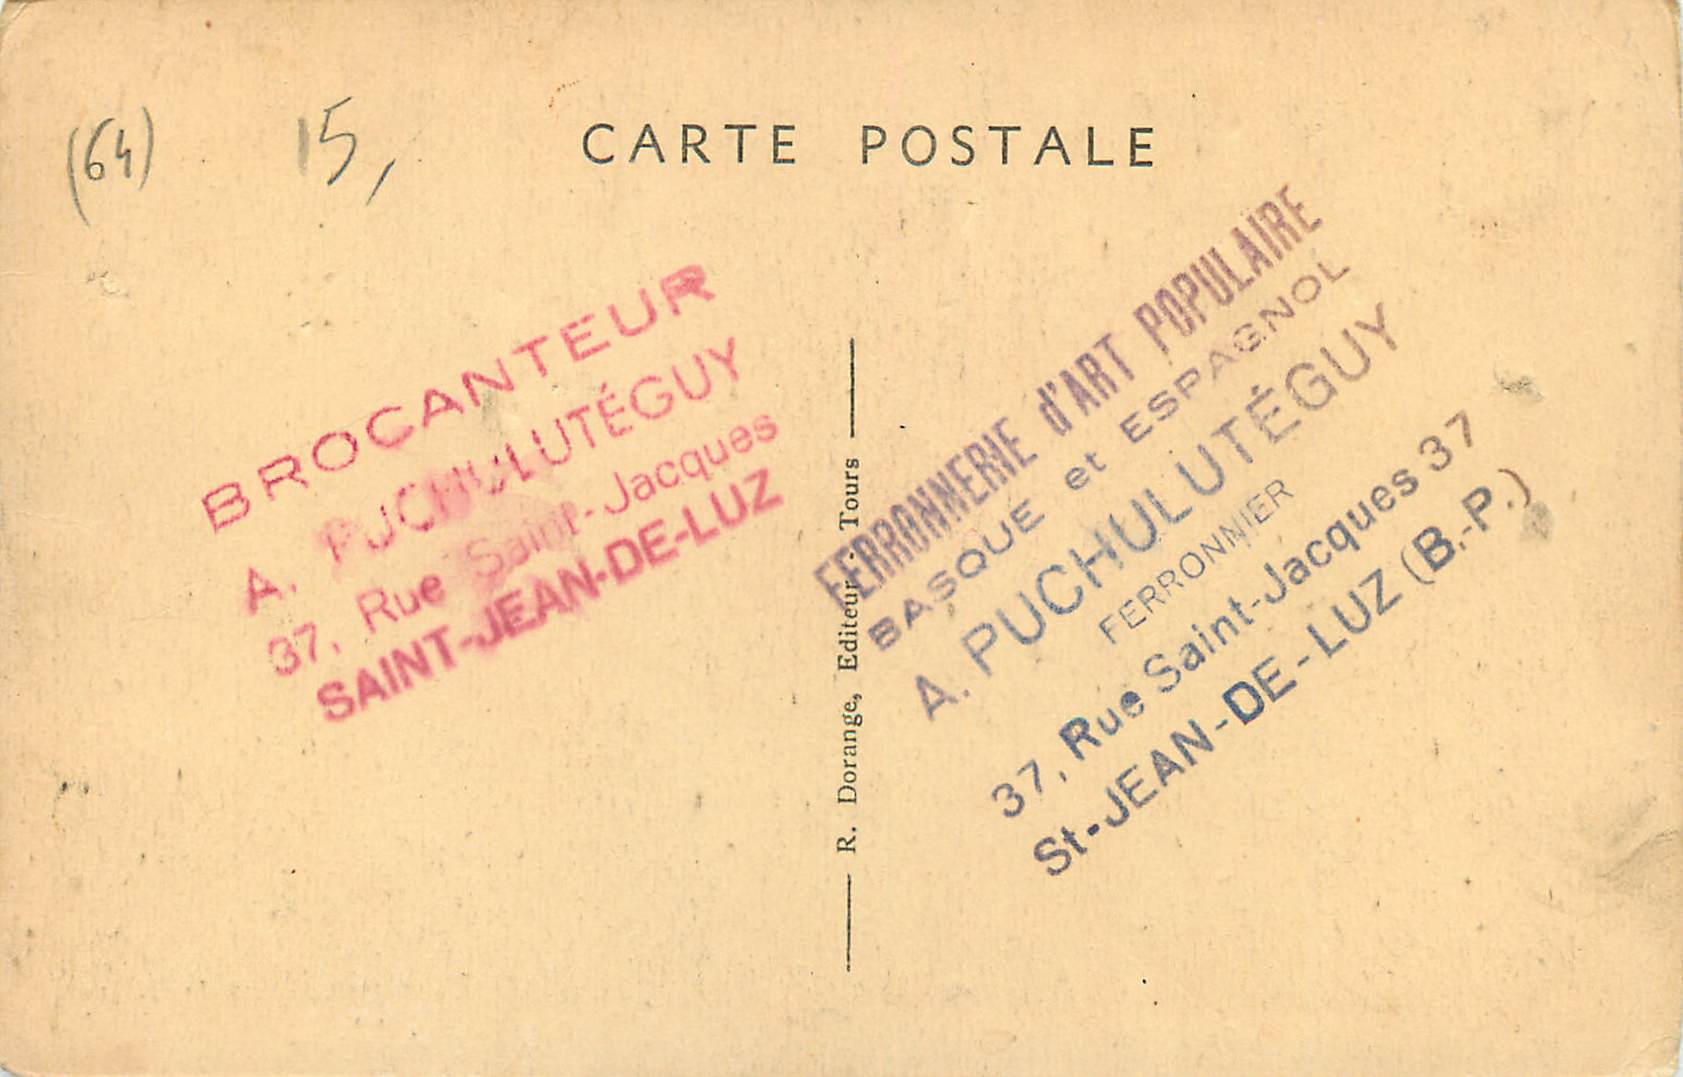 (64) 15,
CARTE POSTALE
BROCANTEUR
A. PUCHULUTÉGUY
37, Rue Saint-Jacques
SAINT-JEAN-DE-LUZ
R. Dorange, Editeur - Tours
FERRONNERIE d'ART POPULAIRE
BASQUE et ESPAGNOL
A. PUCHULUTÉGUY
FERRONNIER
37, Rue Saint-Jacques 37
St-JEAN-DE-LUZ (B.-P.)